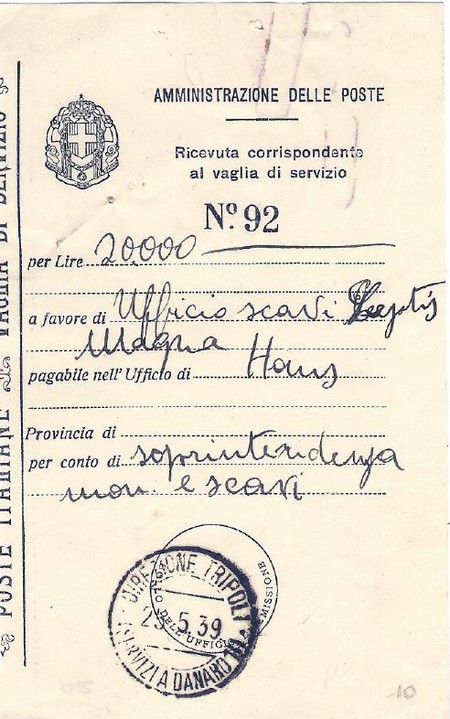 AMMINISTRAZIONE DELLE POSTE
Ricevuta corrispondente
al vaglia di servizio
Nº 92
per Lire 20,000
a favore di Ufficio scavi Leptis
Magna
pagabile nell' Ufficio di Homs
Provincia di
per conto di soprintendenza
mon e scavi
DIREZIONE TRIPOLI
5.39
SERVIZI A DANARO
BOLLO DELL'UFFICIO
MISSIONE
POSTE ITALIANE
VAGLIA DI SERVIZIO
10